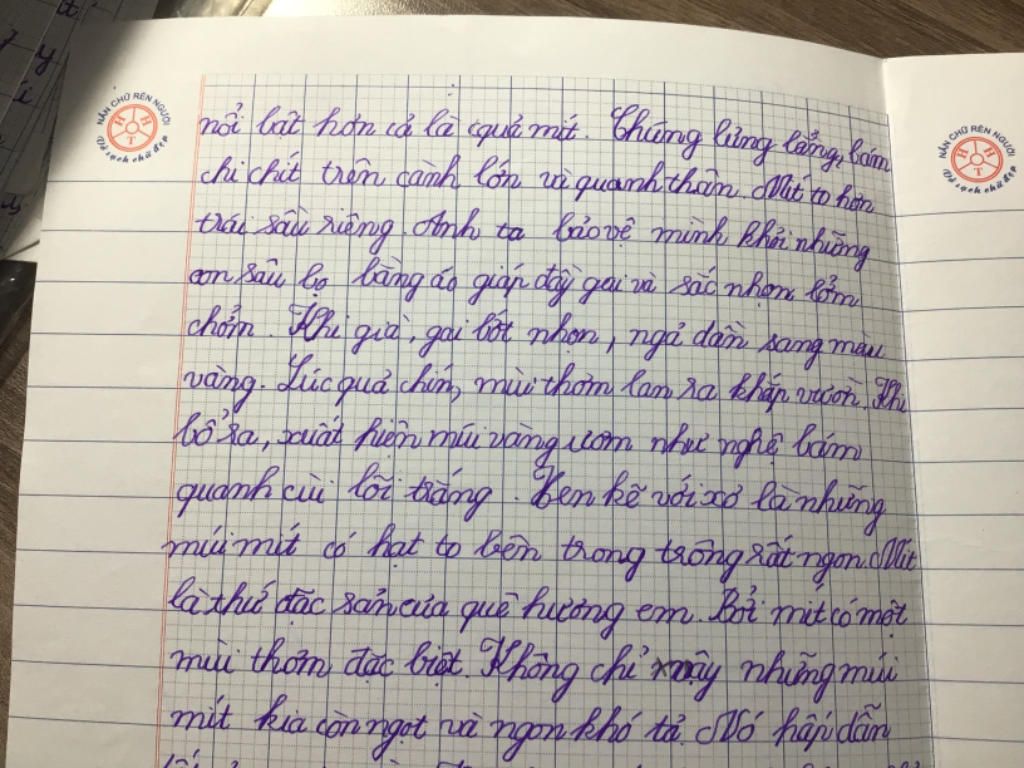 NẮN CHỮ RÈN NGƯỜI
H H T
Vở sạch chữ đẹp
NẮN CHỮ RÈN NGƯỜI
H H T
Vở sạch chữ đẹp
nổi bật hơn cả là quả mít. Chúng lủng lẳng, bám
chi chít trên cành lớn và quanh thân. Mít to hơn
trái sầu riêng. Anh ta bảo vệ mình khỏi những
con sâu bọ bằng áo giáp đầy gai và sắc nhọn lởm
chởm. Khi già, gai bớt nhọn, ngả dần sang màu
vàng. Lúc quả chín, mùi thơm lan ra khắp vườn. Khi
bổ ra, xuất hiện múi vàng ươm như nghệ bám
quanh cùi lõi trắng. Xen kẽ với xơ là những
múi mít có hạt to bên trong trông rất ngon. Mít
là thứ đặc sản của quê hương em. Bởi mít có một
mùi thơm đặc biệt. Không chỉ vậy những múi
mít kia còn ngọt và ngon khó tả. Nó hấp dẫn